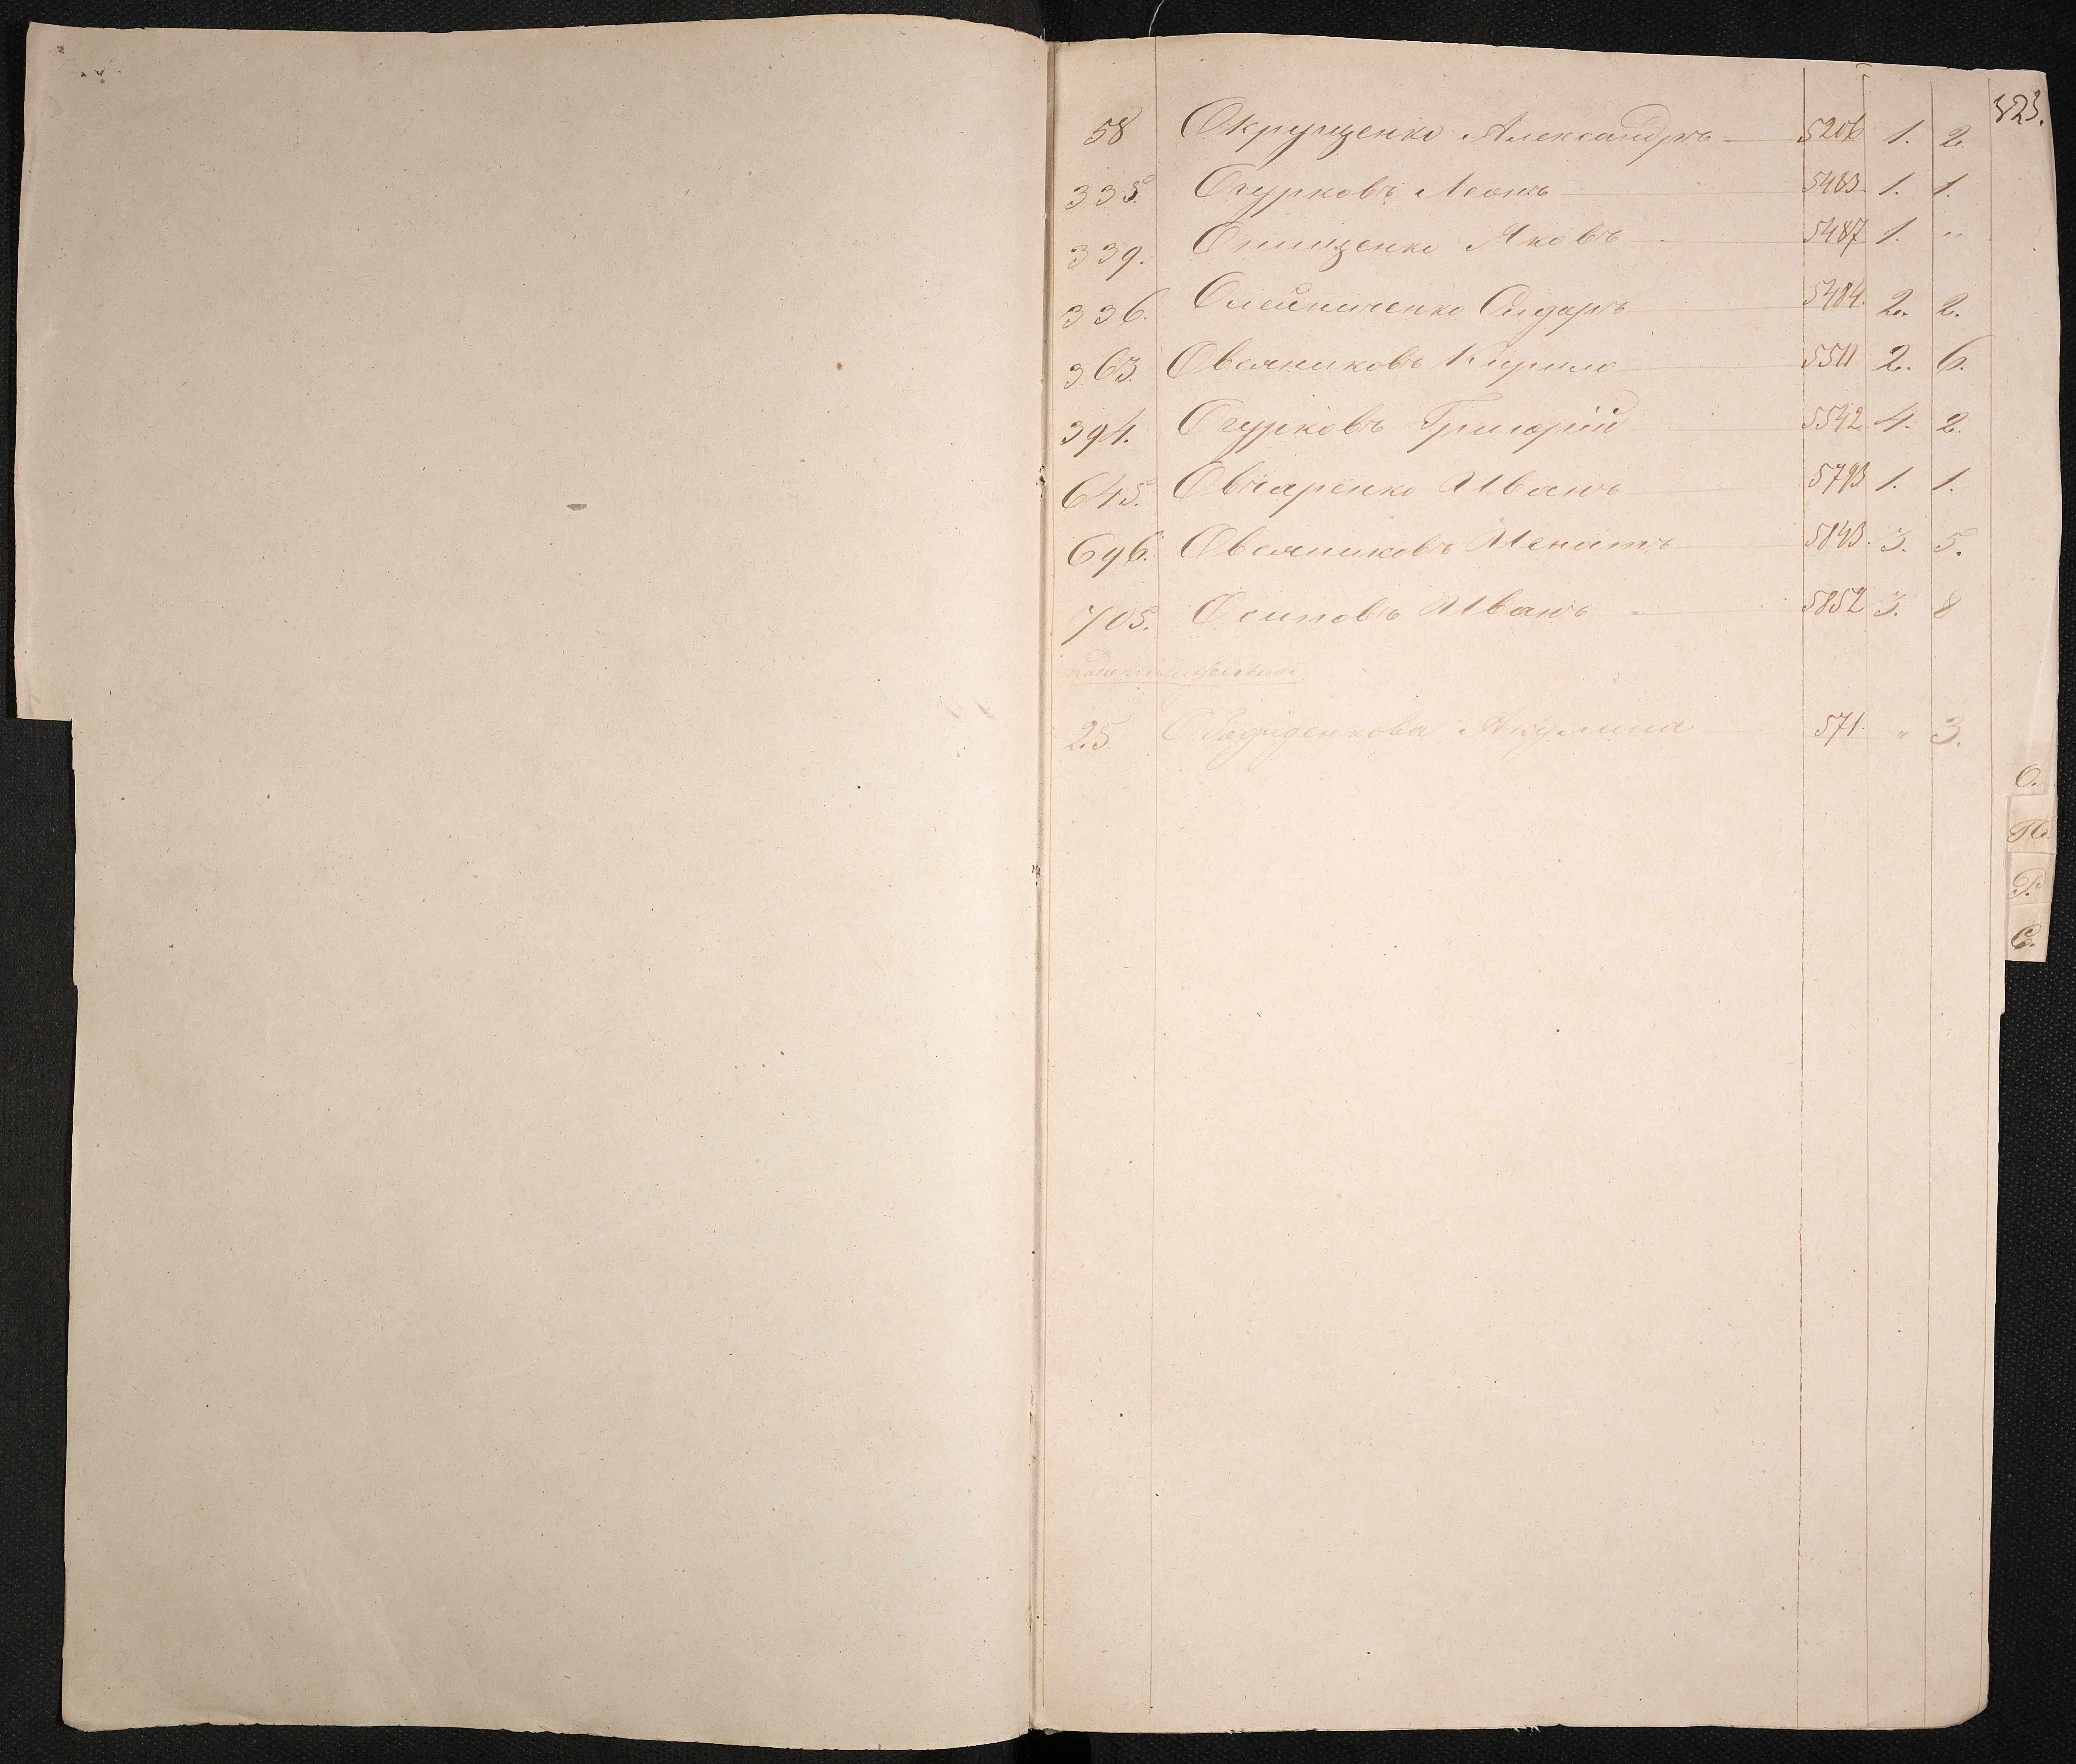 323.
58 Окрущенко Александръ 5206 1. 2.
335. Огурковъ Леонъ 5483 1. 1.
339. Онищенко Яковъ 5487 1. "
336. Олейниченко Сидоръ 5484. 2. 2.
363. Овсяниковъ Кирило 5511 2. 6.
394. Огурковъ Григорій 5542 4. 2.
645. Овчаренко Иванъ 5793 1. 1.
696. Овсяниковъ Игнатъ 5843. 3. 5.
705. Осиповъ Иванъ 5852 3. 8
25. Акулина 571. " 3.
О.
П.
Р.
С.